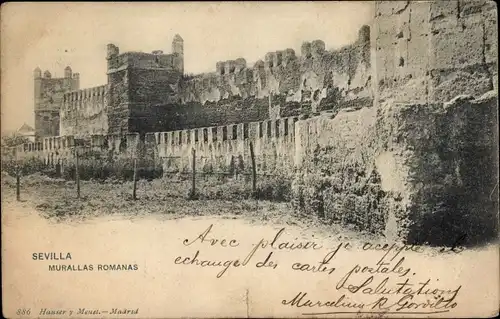 SEVILLA
MURALLAS ROMANAS
Avec plaisir je accepte
echange des cartes postales
Salutations
Marcelino R. Gordillo
886 Hauser y Menet.—Madrid